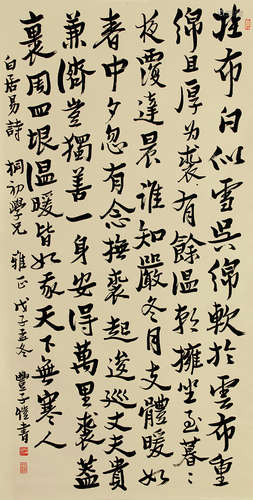 桂布白似雪吳綿軟於雲布重
綿且厚为裘有餘温朝擁坐至暮
夜覆達晨誰知嚴冬月支體暖如
春中夕忽有念撫裘起逡巡丈夫貴
兼濟豈獨善一身安得萬里裘蓋
裹周四垠温暖皆如我天下無寒人
白居易詩 桐初學兄 雅正 戊子孟冬 豐子愷書